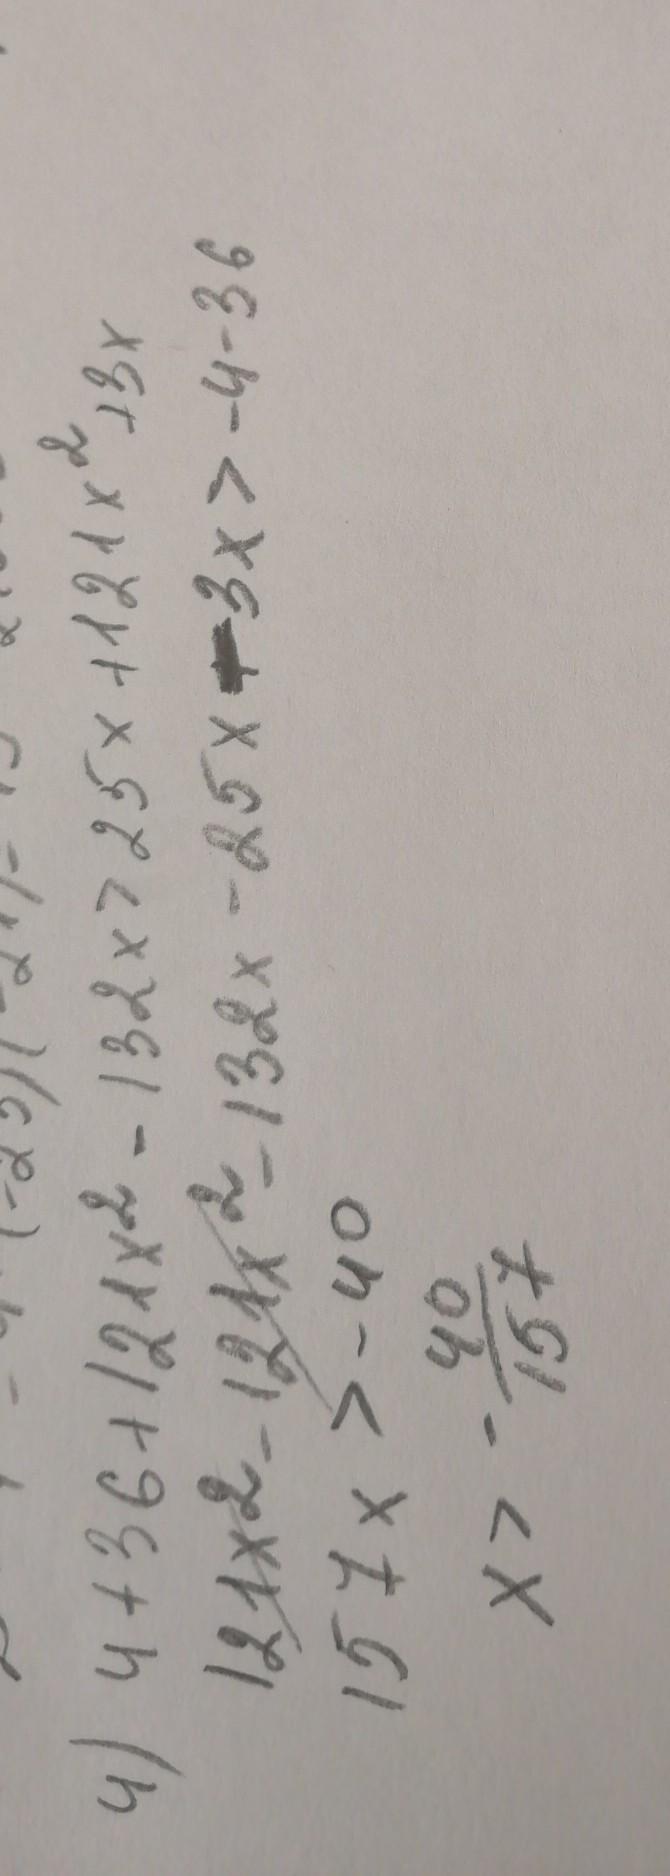 4) 4+36+121x²-132x>25x+121x²+3x
121x²-121x²-132x-25x-3x>-4-36
157x>-40
x>-40/157